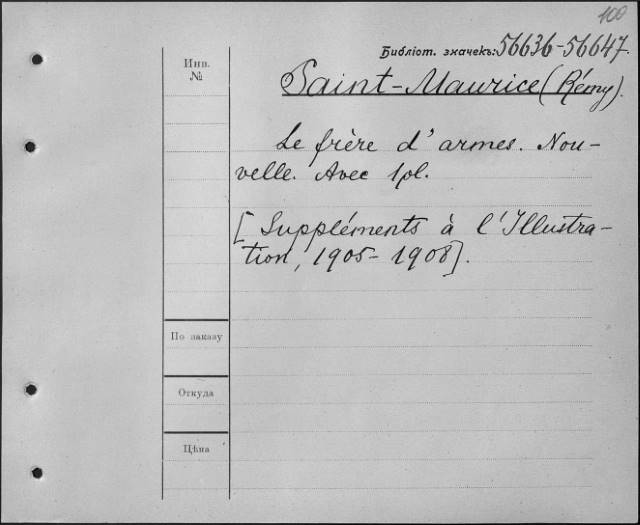 100
Библіот. значекъ: 56636-56647.
Инв.
№
Saint-Maurice (Rémy).
Le frère d'armes. Nou-
velle. Avec 1 pl.
[Suppléments à l'Illustra-
tion, 1905-1908].
По заказу
Откуда
Цѣна